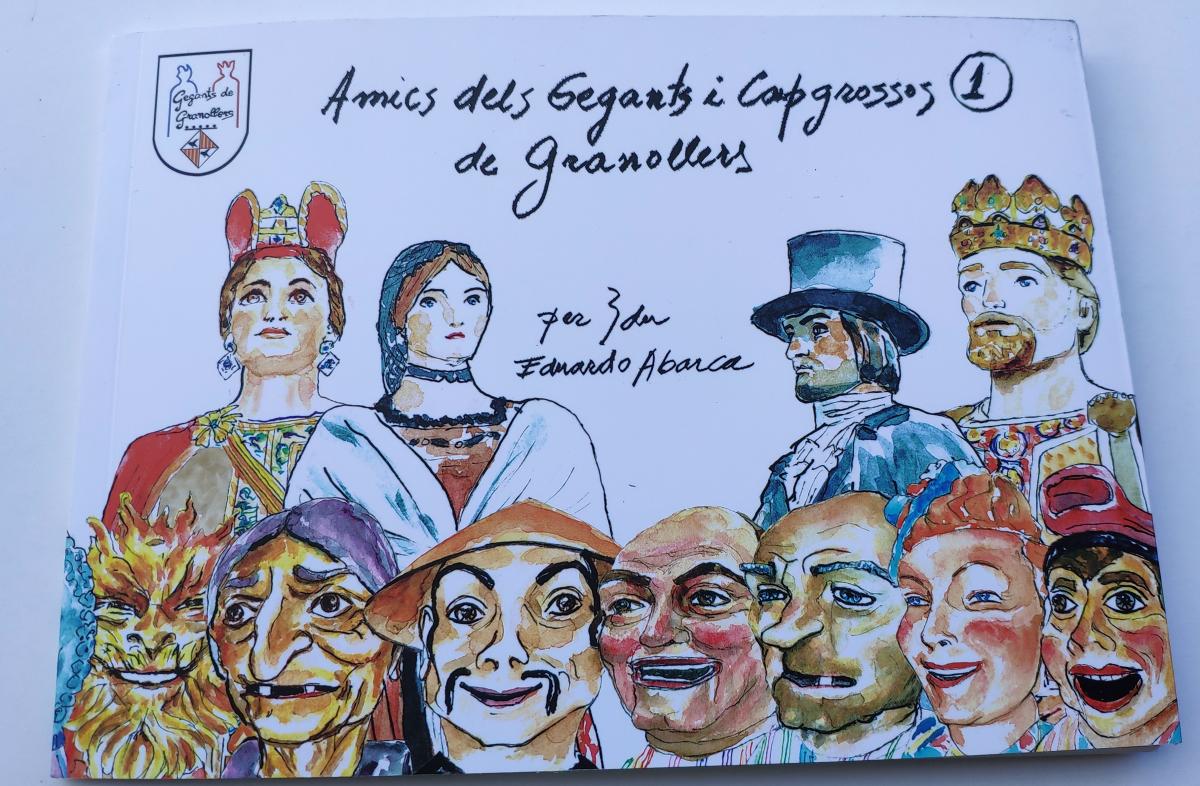 Gegants de
Granollers
Amics dels Gegants i Capgrossos 1
de Granollers
per Edu
Eduardo Abarca